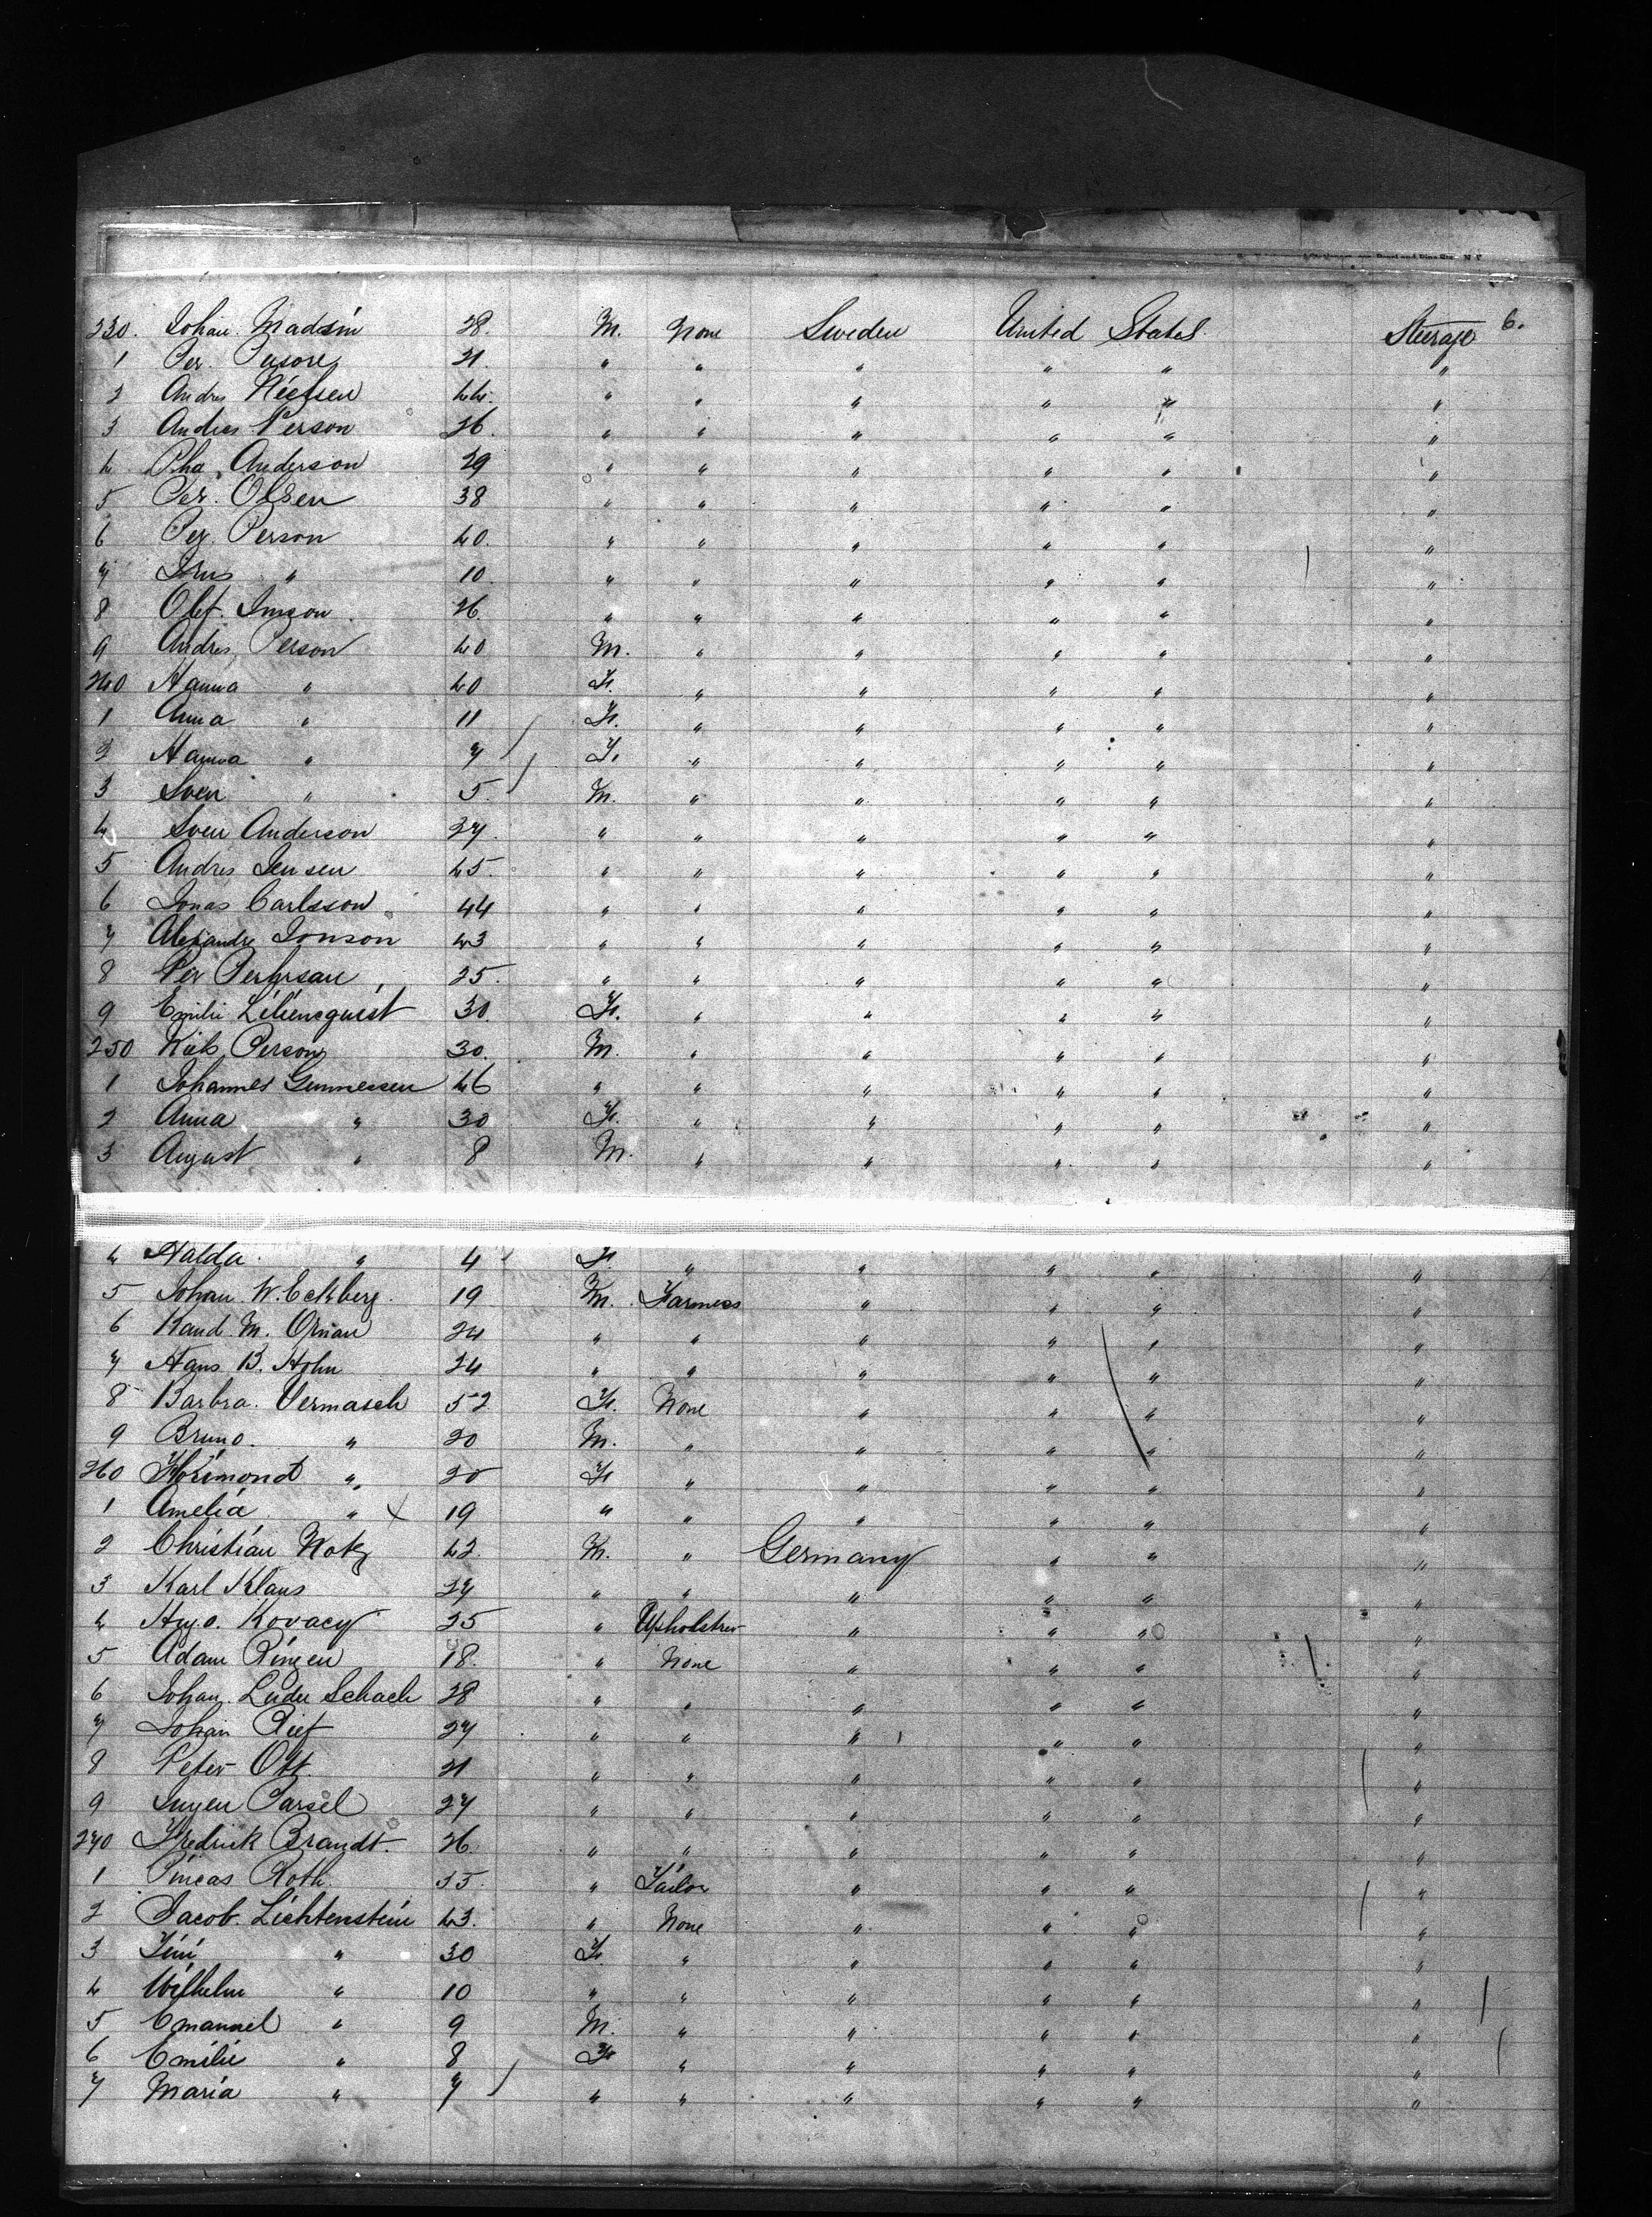 6.
230. Johan Madsin 28. M. None Sweden United States Steerage
1 Per 21. " " " " " "
2 Andres Nielsen 44. " " " " " "
3 Andres Person 26. " " " " " "
4 Pha. Anderson 29 " " " " " "
5 Per. Olsen 38 " " " " " "
6 Per. Person 40. " " " " " "
7 " 10. " " " " " "
8 Olef. 26. " " " " " "
9 Andres Person 40 M. " " " " "
240 Hanna " 40 F. " " " " "
1 Anna " 11 F. " " " " "
2 Hanna " 7 F. " " " " "
3 Sven " 5. M. " " " " "
4 Sven Anderson 27. " " " " " "
5 Andres Jensen 45. " " " " " "
6 Jonas Carlsson 44 " " " " " "
7 Alexandre Jonson 43 " " " " " "
8 Per 25. " " " " " "
9 Emilie Liliencquist 30. F. " " " " "
250 Person 30. M. " " " " "
1 Johannes Gunnessen 46 " " " " " "
2 Anna " 30 F. " " " " "
3 August " 8 M. " " " " "
4 Halda " 4 F. " " " " "
5 Johan W. Eckberg. 19 M. Farmers " " " "
6 Rand. M. 24 " " " " " "
7 Hans B. Hohn 24 " " " " " "
8 Barbra. Vermasch 52 F. None " " " "
9 Bruno. " 20 M. " " " " "
260 " 20 F. " " " " "
1 Amelia " x 19 " " " " " "
2 Christian Notz 42. M. " Germany " " "
3 Karl Klaus 27 " " " " " "
4 Hugo. Kovacy 25 " Upholstrer " " " "
5 Adam Ringen 18. " None " " " "
6 Johan. Schach 28 " " " " " "
7 Johan Rief 27 " " " " " "
8 Peter Ott. 21 " " " " " "
9 Parsel 27 " " " " " "
270 Fredrick Brandt. 26. " " " " " "
1 Pincas Roth. 35. " Tailor " " " "
2 Jacob. Lichtenstein 43. " None " " " "
3 " 30 F. " " " " "
4 Wilhelm " 10 " " " " " "
5 Emanuel " 9 M. " " " " "
6 Emilie " 8 F " " " " "
7 Maria " 7 " " " " " "